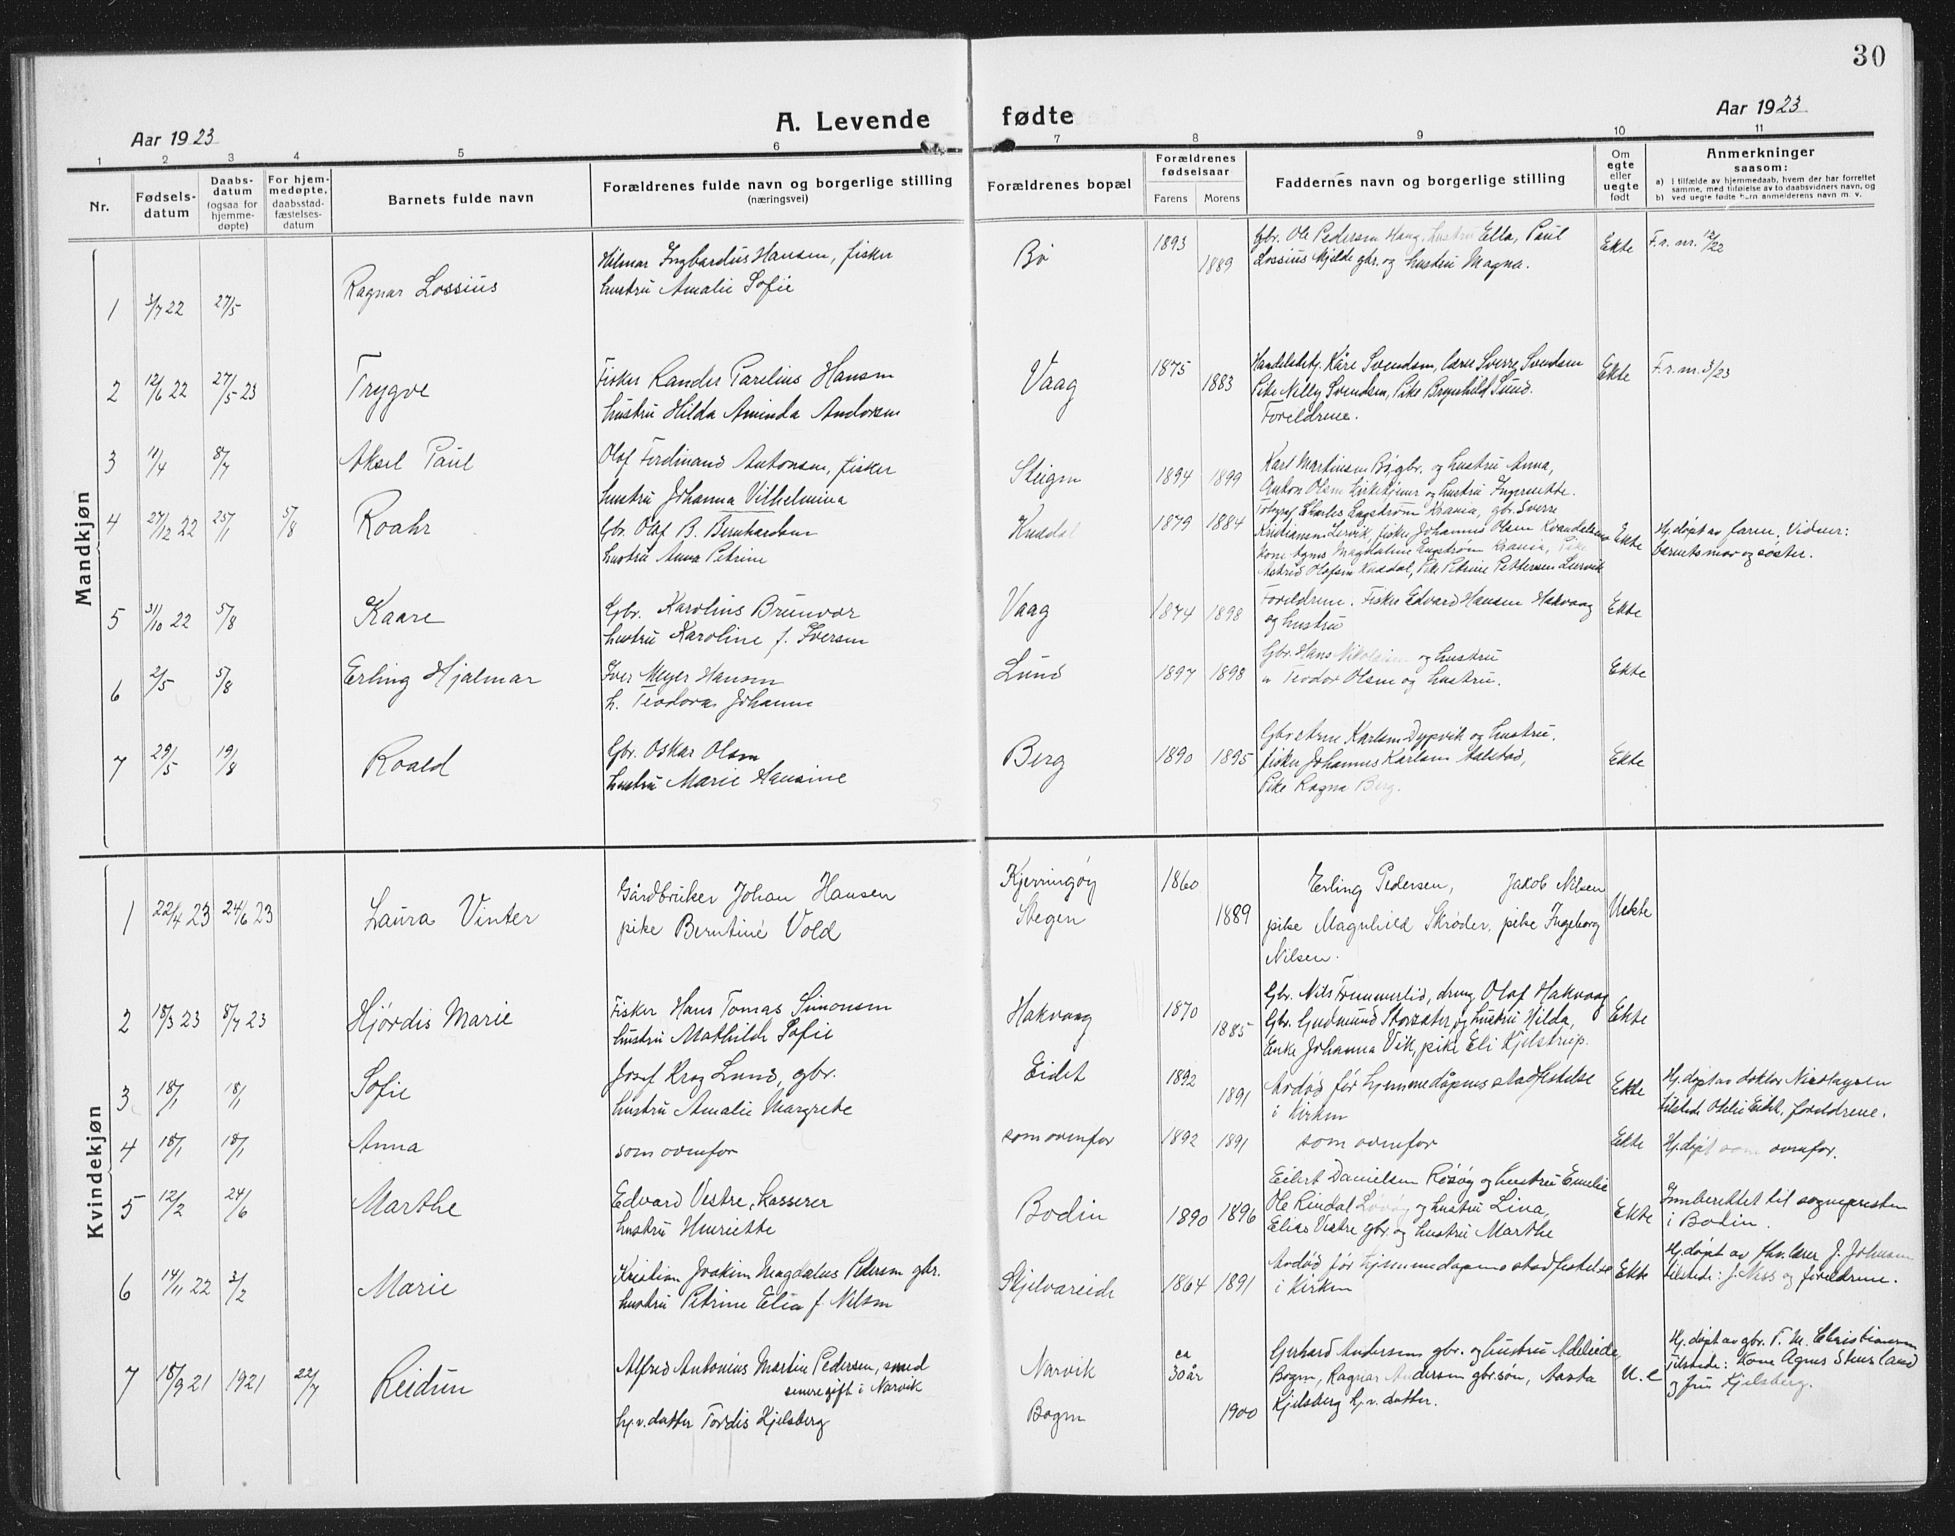 30
Aar 1923
A. Levende fødte
Aar 1923
1 2 3 4 5 6 7 8 9 10 11
Nr.
Fødsels-
datum
Daabs-
datum
(ogsaa for
hjemme-
døpte)
For hjem-
medøpte,
daabsstad-
fæstelses-
datum
Barnets fulde navn
Forældrenes fulde navn og borgerlige stilling
(næringsvei)
Forældrenes bopæl
Forældrenes
fødselsaar
Farens Morens
Faddernes navn og borgerlige stilling
Om
egte
eller
uegte
født
Anmerkninger
saasom:
a) I tilfælde av hjemmedaab, hvem der har forrettet
samme, med tilføielse av to daabsvidners navn, og
b) ved uegte fødte barn anmelderens navn m. v.
Mandkjøn
1 3/7 22 27/5 Ragnar Lossius
Hilmar Ingbardus Hansen, fisker
hustru Amalie Sofie
Bø 1893 1889
Gbr. Ole Pedersen Haug, hustru Ella, Paul
Lossius Kjelde gbr. og hustru Magna.
Ekte F.r. nr. 12/22
2 12/6 22 27/5-23 Trygve
Fisker Rander Parelius Hansen
hustru Hilda Aminda Andersen
Vaag 1875 1883
Handelsbetj. Kåre Svendsen, lærer Sverre Svendsen
Pike Nilly Svendsen, Pike Brynhild Lund.
Foreldrene.
Ekte F.r. nr. 3/23
3 11/4 8/7 Aksel Paul
Olaf Ferdinand Antonsen, fisker
hustru Johanna Vilhelmina
Steigen 1894 1899
Karl Martinsen Bø, gbr. og hustru Anna,
Anton Olsen Kirketjener og hustru Ingernette.
4 27/12 22 25/1 5/8 Roahr
Gbr. Olaf B. Bernhardsen
hustru Anna Petrine
1879 1884
Fotograf Charles Engstrøm Krania, gbr. Sverre
Kristiansen Lervik, fisker Johannes Olsen
kone Agnes Magdaline Engstrøm Krania, Pike
Astrid Olafsen, Pike Petrine Pettersen Lervik
Ekte
Hj.døpt av faren. Vidner:
barnets mor og søster.
5 31/10 22 5/8 Kaare
Gbr. Karolius Brunvær
hustru Karoline f. Iversen
Vaag 1874 1898
Foreldrene. Fisker Edvard Hansen Hakvaag
og hustru
Ekte
6 2/5 5/8 Erling Hjalmar
Iver Meyer Hansen
h. Teodora Johanne
Lund 1897 1898
Gbr. Hans Nikolaisen og hustru
" Teodor Olsen og hustru.
Ekte
7 29/5 19/8 Roald
Gbr. Oskar Olsen
hustru Marie Hansine
Berg 1890 1895
Gbr Karlsen Dypvik og hustru,
fisker Johannes Karlsen Aalstad,
Pike Ragna Berg.
Ekte
Kvindekjøn
1 22/4 23 24/6 23 Laura Vinter
Gårdbruker Johan Hansen
pike Berntine Vold
Kjerringøy
Stegen
1860 1889
Erling Pedersen, Jakob Nilsen
pike Magnhild Skrøder, pike Ingeborg
Nilsen.
Uekte
2 18/3 23 8/7 23 Hjördis Marie
Fisker Hans Tomas Simonsen
hustru Mathilde Sofie
Hakvaag 1870 1885
Gbr. Nils Trommerlid, dreng Olaf Hakvaag
Gbr. Gudmund Storsæter, og hustru Hilda,
Enke Johanna Vik, pike Eli Kjelstrup.
Ekte
3 18/1 18/1 Sofie
Josef Krog Lund, gbr.
hustru Amalie Margrete
Eidet 1892 1891
Avdød før hjemmedåpens stadfestelse
i kirken
Ekte
Hj.døpt av doktor Nicolaysen
tilstede Otelie Eidet, foreldrene.
4 18/1 18/1 Anna
som ovenfor
som ovenfor 1892 1891
som ovenfor
Ekte Hj.døpt som ovenfor.
5 12/2 24/6 Marthe
Edvard Vestre, kasserer
hustru Henriette
Bodin 1890 1896
Eilert Danielsen Røsøg og hustru Emelie
Ole Rindal Løvøy og hustru Lina,
Elias Vestre gbr. og hustru Marthe
Ekte
Innberettet til sognepresten
i Bodin.
6 14/11 22 3/2 Marie
Kristian Joakim Magdalus Pedersen gbr.
hustru Petrine Elia f. Nilsen
Skjelvareide 1864 1891
Avdød før hjemmedåpens stadfestelse
i kirken
Ekte
Hj.døpt av fhv. lærer J. Johnsen
tilstede: J. Ness og foreldrene.
7 18/9 21 1921 22/7 Reidun
Alfred Antonius Martin Pedersen, smed
senere gift i Narvik
hj.v. datter Tordis Kjelsberg
Narvik
Bogen
ca
30 år
1900
Gerhard Andersen gbr. og hustru Adeleide,
Bogen, Ragnar Andersen gbr.søn, Aasta
Kjelsberg hj.v. datter.
U.e
Hj.døpt av gbr. T. M. Christiansen
tilstede: kone Agnes Stensland
og fru Kjelsberg.